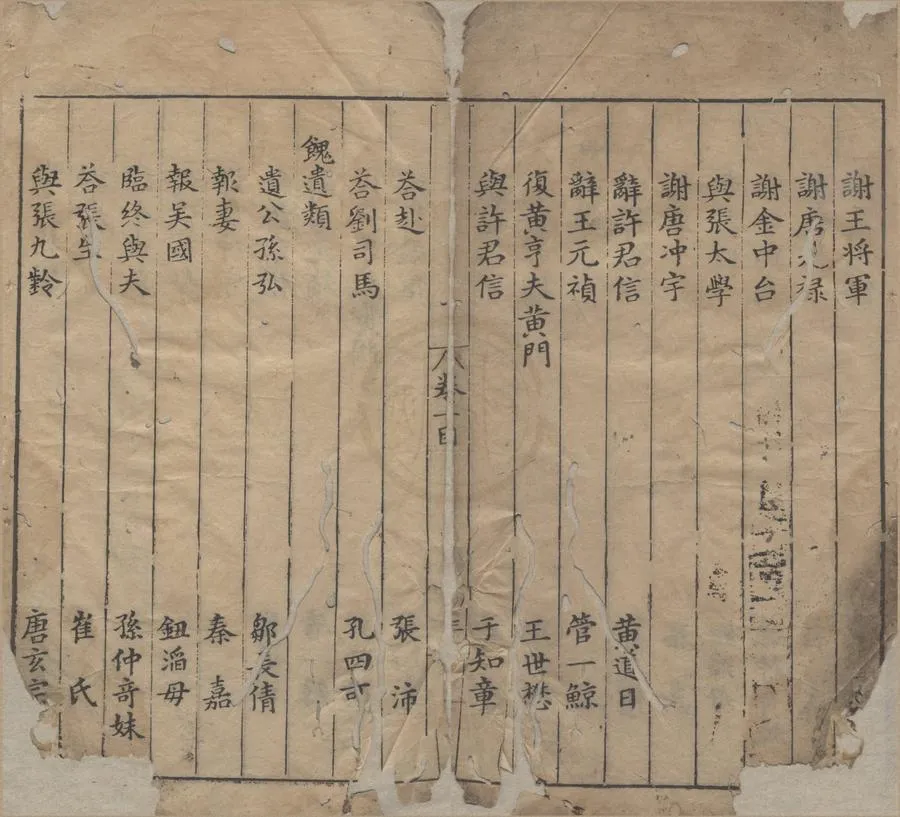 謝王將軍
謝唐光祿
謝金中台
與張太學
謝唐冲宇
辭許君信 黃道日
辭王元禎 管一鯨
復黃亨夫黃門 王世懋
與許君信 于知章
八卷一目
荅赴 張沛
荅劉司馬 孔四可
餽遺類
遺公孫弘 鄒長倩
報妻 秦嘉
報吴國 鈕滔母
臨終與夫 孫仲奇妹
荅張生 崔氏
與張九齡 唐玄宗